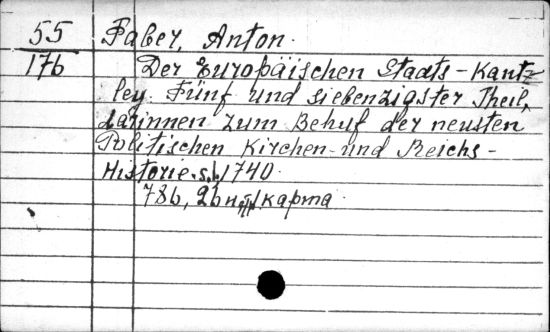 55 Faber, Anton.
176 Der Europäischen Staats-Kantz
ley. Fünf und siebenzigster Theil,
darinnen zum Behuf der neusten
Politischen Kirchen- und Reichs-
Historie. s.l., 1740.
786, 26 карта